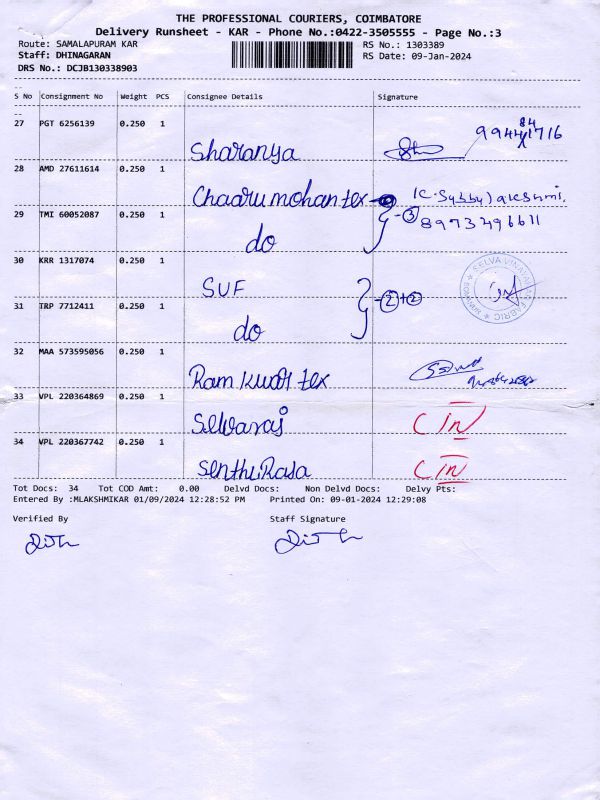 THE PROFESSIONAL COURIERS, COIMBATORE
Delivery Runsheet - KAR - Phone No.:0422-3505555 - Page No.:3
Route: SAMALAPURAM KAR RS No.: 1303389
Staff: DHINAGARAN RS Date: 09-Jan-2024
DRS No.: DCJB130338903
S No Consignment No Weight PCS Consignee Details Signature
27 PGT 6256139 0.250 1
Sharanya
28 AMD 27611614 0.250 1
Chaarumohan tex
29 TMI 60052087 0.250 1 - ③ 8973496611
do
30 KRR 1317074 0.250 1
SUF SELVA VINAYAGA FABRIC
31 TRP 7712411 0.250 1 - ② + ②
do
32 MAA 573595056 0.250 1
Ram tex
33 VPL 220364869 0.250 1
Selvaraj C IN
34 VPL 220367742 0.250 1
SenthilRaja C IN
Tot Docs: 34 Tot COD Amt: 0.00 Delvd Docs: Non Delvd Docs: Delvy Pts:
Entered By :MLAKSHMIKAR 01/09/2024 12:28:52 PM Printed On: 09-01-2024 12:29:08
Verified By Staff Signature